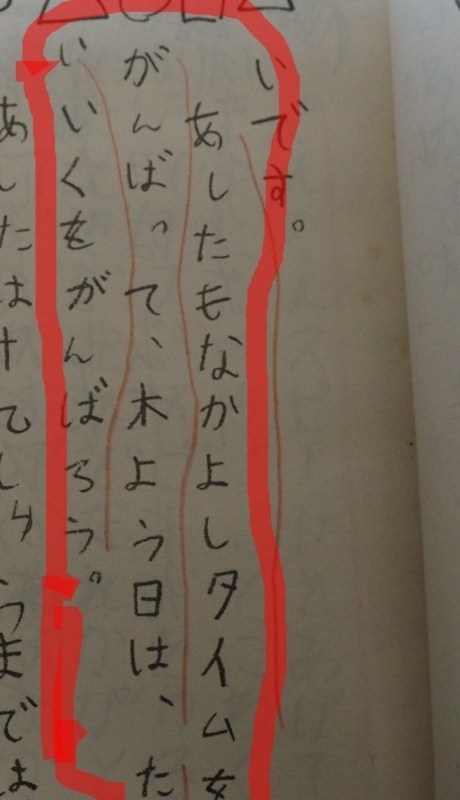 いです。
あしたもなかよしタイムを
がんばって、木よう日は、た
いいくをがんばろう。
あしたは